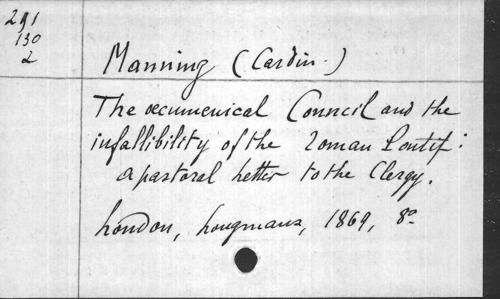 291
130
2
Manning (Cardin.)
The œcumenical Council and the
infallibility of the Roman Pontif:
a pastoral letter to the Clergy.
London, Longmans, 1869, 8º